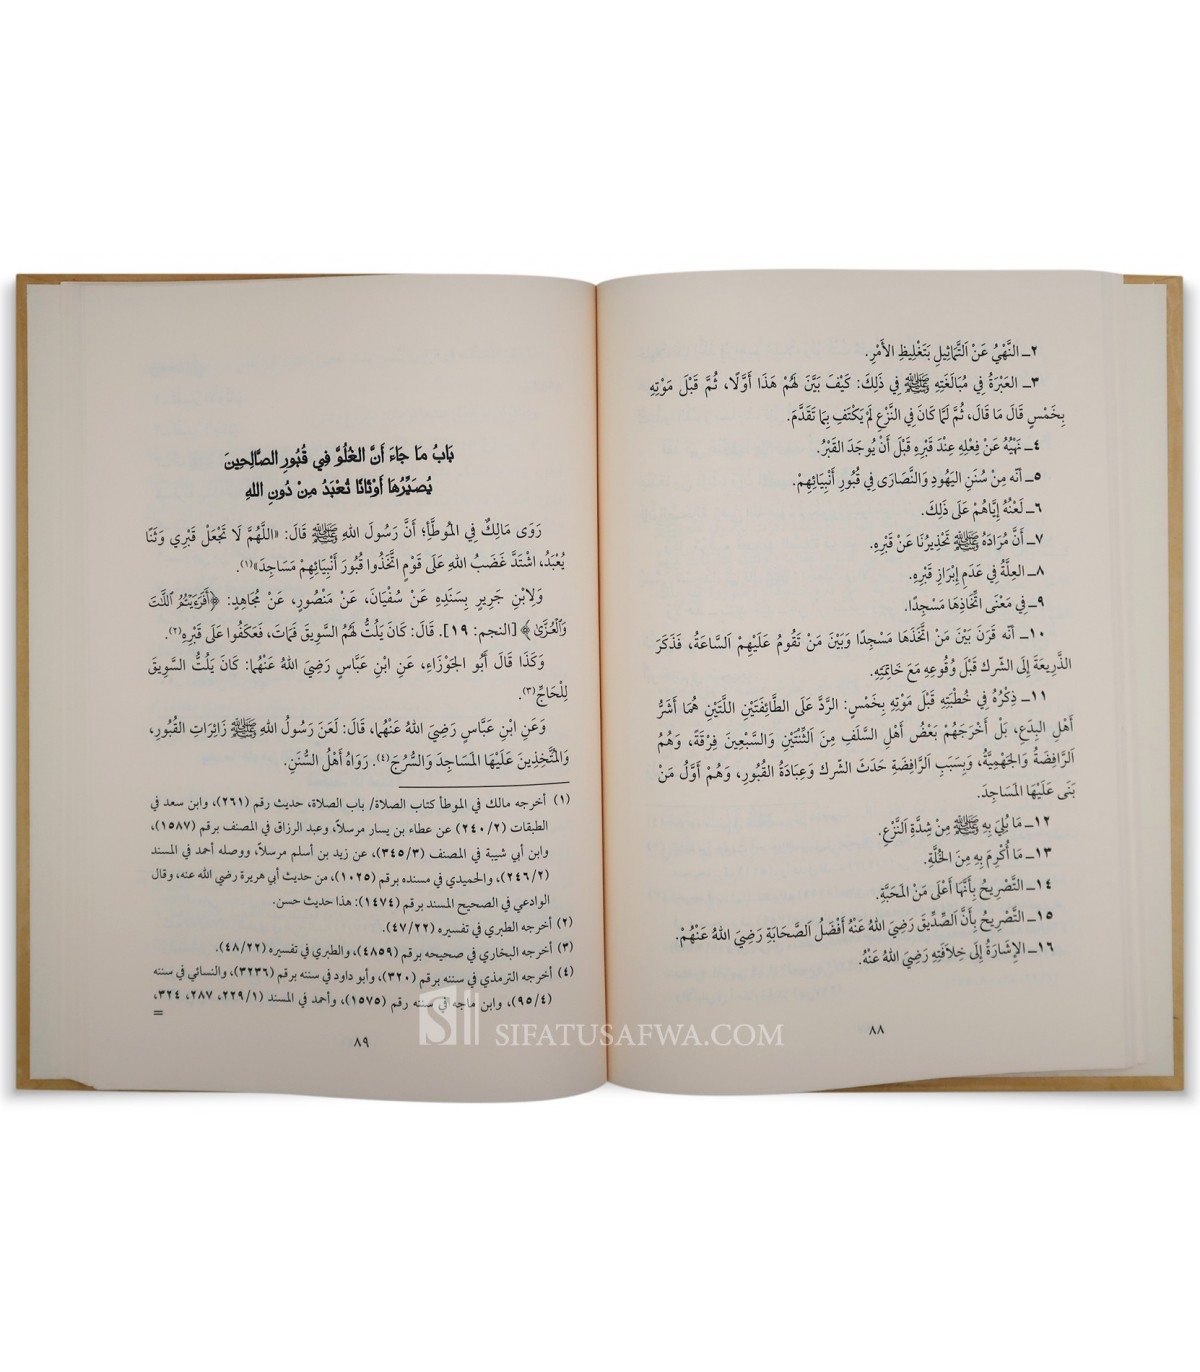 ٢ـ النَّهْيُ عَنْ التَّمَاثِيلِ بَتَغْلِيظِ الأَمْرِ.
٣ـ العَبْرَةُ فِي مُبَالَغَتِهِ ﷺ فِي ذَلِكَ: كَيْفَ بَيَّنَ لَهُمْ هَذَا أَوَّلًا، ثُمَّ قَبْلَ مَوْتِهِ
بِخَمْسٍ قَالَ مَا قَالَ، ثُمَّ لَمَّا كَانَ فِي النَّزْعِ لَمْ يَكْتَفِ بِمَا تَقَدَّمَ.
٤ـ نَهْيُهُ عَنْ فِعْلِهِ عِنْدَ قَبْرِهِ قَبْلَ أَنْ يُوجَدَ القَبْرُ.
٥ـ أنّه مِنْ سُنَنِ اليَهُودِ وَالنَّصَارَى فِي قُبُورِ أَنْبِيَائِهِمْ.
٦ـ لَعْنُهُ إِيَّاهُمْ عَلَى ذَلِكَ.
٧ـ أَنَّ مُرَادَهُ ﷺ تَحْذِيرُنَا عَنْ قَبْرِهِ.
٨ـ العِلَّةُ فِي عَدَمِ إِبْرَازِ قَبْرِهِ.
٩ـ فِي مَعْنَى اتِّخَاذِهَا مَسْجِدًا.
١٠ـ أنّه قَرَنَ بَيْنَ مَنْ اتَّخَذَهَا مَسْجِدًا وَبَيْنَ مَنْ تَقُومُ عَلَيْهِمْ السَّاعَةُ، فَذَكَرَ
الذَّرِيعَةَ إِلَى الشّرك قَبْلَ وُقُوعِهِ مَعَ خَاتِمَتِهِ.
١١ـ ذِكْرُهُ فِي خُطْبَتِهِ قَبْلَ مَوْتِهِ بِخَمْسٍ: الرَّدَّ عَلَى الطَّائِفَتَيْنِ اللَّتَيْنِ هُمَا أَشَرُّ
أَهْلِ البِدَعِ، بَلْ أَخْرَجَهُمْ بَعْضُ أَهْلِ السَّلَفِ مِنَ الثِّنْتَيْنِ وَالسَّبْعِينَ فِرْقَةً، وَهُمُ
الرَّافِضَةُ وَالجَهْمِيَّةُ، وَبِسَبَبِ الرَّافِضَةِ حَدَثَ الشّرك وَعِبَادَةُ القُبُورِ، وَهُمْ أَوَّلُ مَنْ
بَنَى عَلَيْهَا المَسَاجِدَ.
١٢ـ مَا بُلِيَ بِهِ ﷺ مِنْ شِدَّةِ النَّزْعِ.
١٣ـ مَا أُكْرِمَ بِهِ مِنَ الخُلَّةِ.
١٤ـ التَّصْرِيحُ بِأَنَّهَا أَعْلَى مَنْ المَحَبَّةِ.
١٥ـ التَّصْرِيحُ بِأَنَّ الصِّدِّيقَ رَضِيَ اللهُ عَنْهُ أَفْضَلُ الصَّحَابَةِ رَضِيَ اللهُ عَنْهُمْ.
١٦ـ الإِشَارَةُ إِلَى خِلَافَتِهِ رَضِيَ اللهُ عَنْهُ.
٨٨
بَابُ مَا جَاءَ أَنَّ الغُلُوَّ فِي قُبُورِ الصَّالِحِينَ
يُصَيِّرُهَا أَوْثَانًا تُعْبَدُ مِنْ دُونِ اللهِ
رَوَى مَالِكٌ فِي المُوطَّأِ؛ أَنَّ رَسُولَ اللهِ ﷺ قَالَ: «اللَّهُمَّ لَا تَجْعَلْ قَبْرِي وَثَنًا
يُعْبَدُ، اشْتَدَّ غَضَبُ اللهِ عَلَى قَوْمٍ اتَّخَذُوا قُبُورَ أَنْبِيَائِهِمْ مَسَاجِدَ»(١).
وَلِابْنِ جَرِيرٍ بِسَنَدِهِ عَنْ سُفْيَانَ، عَنْ مَنْصُورٍ، عَنْ مُجَاهِدٍ: ﴿أَفَرَءَيْتُمُ ٱللَّٰتَ
وَٱلْعُزَّىٰ﴾ [النجم: ١٩]. قَالَ: كَانَ يَلُتُّ لَهُمُ السَّوِيقَ فَمَاتَ، فَعَكَفُوا عَلَى قَبْرِهِ(٢).
وَكَذَا قَالَ أَبُو الجَوْزَاءِ، عَنِ ابْنِ عَبَّاسٍ رَضِيَ اللهُ عَنْهُمَا: كَانَ يَلُتُّ السَّوِيقَ
لِلْحَاجِّ(٣).
وَعَنِ ابْنِ عَبَّاسٍ رَضِيَ اللهُ عَنْهُمَا، قَالَ: لَعَنَ رَسُولُ اللهِ ﷺ زَائِرَاتِ القُبُورِ،
وَالمُتَّخِذِينَ عَلَيْهَا المَسَاجِدَ وَالسُّرُجَ(٤). رَوَاهُ أَهْلُ السُّنَنِ.
(١) أخرجه مالك في الموطأ كتاب الصلاة/ باب الصلاة، حديث رقم (٢٦١)، وابن سعد في
الطبقات (٢/٢٤٠) عن عطاء بن يسار مرسلاً، وعبد الرزاق في المصنف برقم (١٥٨٧)،
وابن أبي شيبة في المصنف (٣/٣٤٥)، عن زيد بن أسلم مرسلاً، ووصله أحمد في المسند
(٢/٢٤٦)، والحميدي في مسنده برقم (١٠٢٥)، من حديث أبي هريرة رضي الله عنه، وقال
الوادعي في الصحيح المسند برقم (١٤٧٤): هذا حديث حسن.
(٢) أخرجه الطبري في تفسيره (٢٢/٤٧).
(٣) أخرجه البخاري في صحيحه برقم (٤٨٥٩)، والطبري في تفسيره (٢٢/٤٨).
(٤) أخرجه الترمذي في سننه برقم (٣٢٠)، وأبو داود في سننه برقم (٣٢٣٦)، والنسائي في سننه
(٤/٩٥)، وابن ماجه في سننه رقم (١٥٧٥)، وأحمد في المسند (١/٢٢٩، ٢٨٧، ٣٢٤،
=
٨٩
SIFATUSAFWA.COM